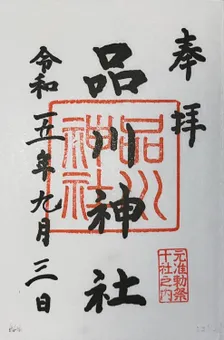 奉拝
元准勅祭
十社之内
品川神社
品川
神社
令和五年九月三日